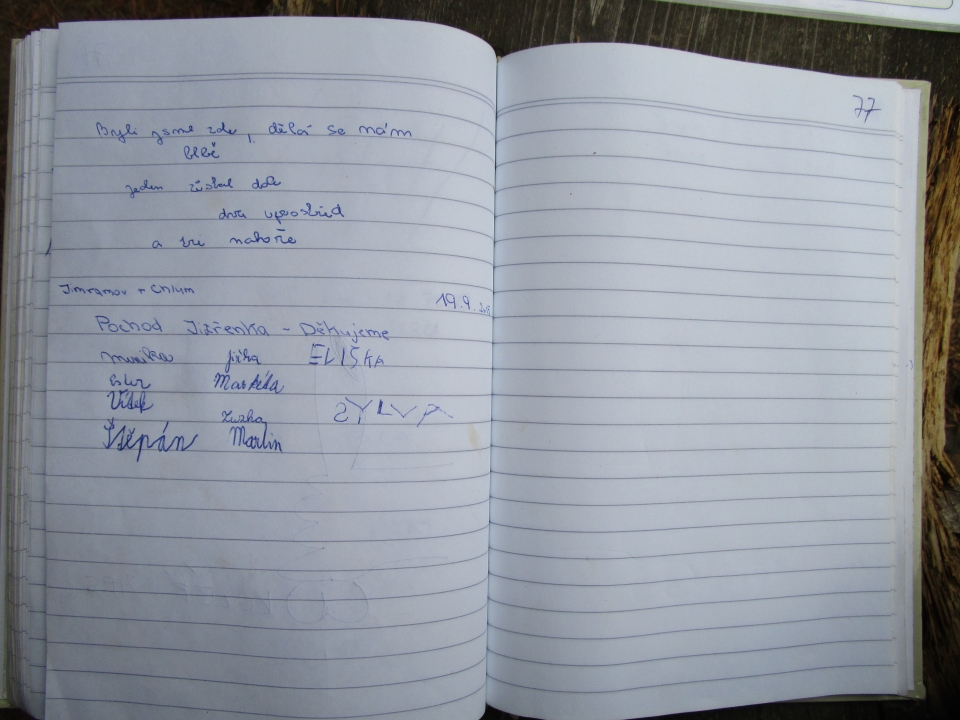 Byli jsme zde, dělá se nám
blbě
jeden zůstal dole
dva uprostřed
a tři nahoře
Jimramov + Chlum
19.9.
Pochod Jiřenka - Děkujeme
Jiřka ELIŠKA
Ester Markéta
Vítek
Zuzka SYLVA
Štěpán Martin
77